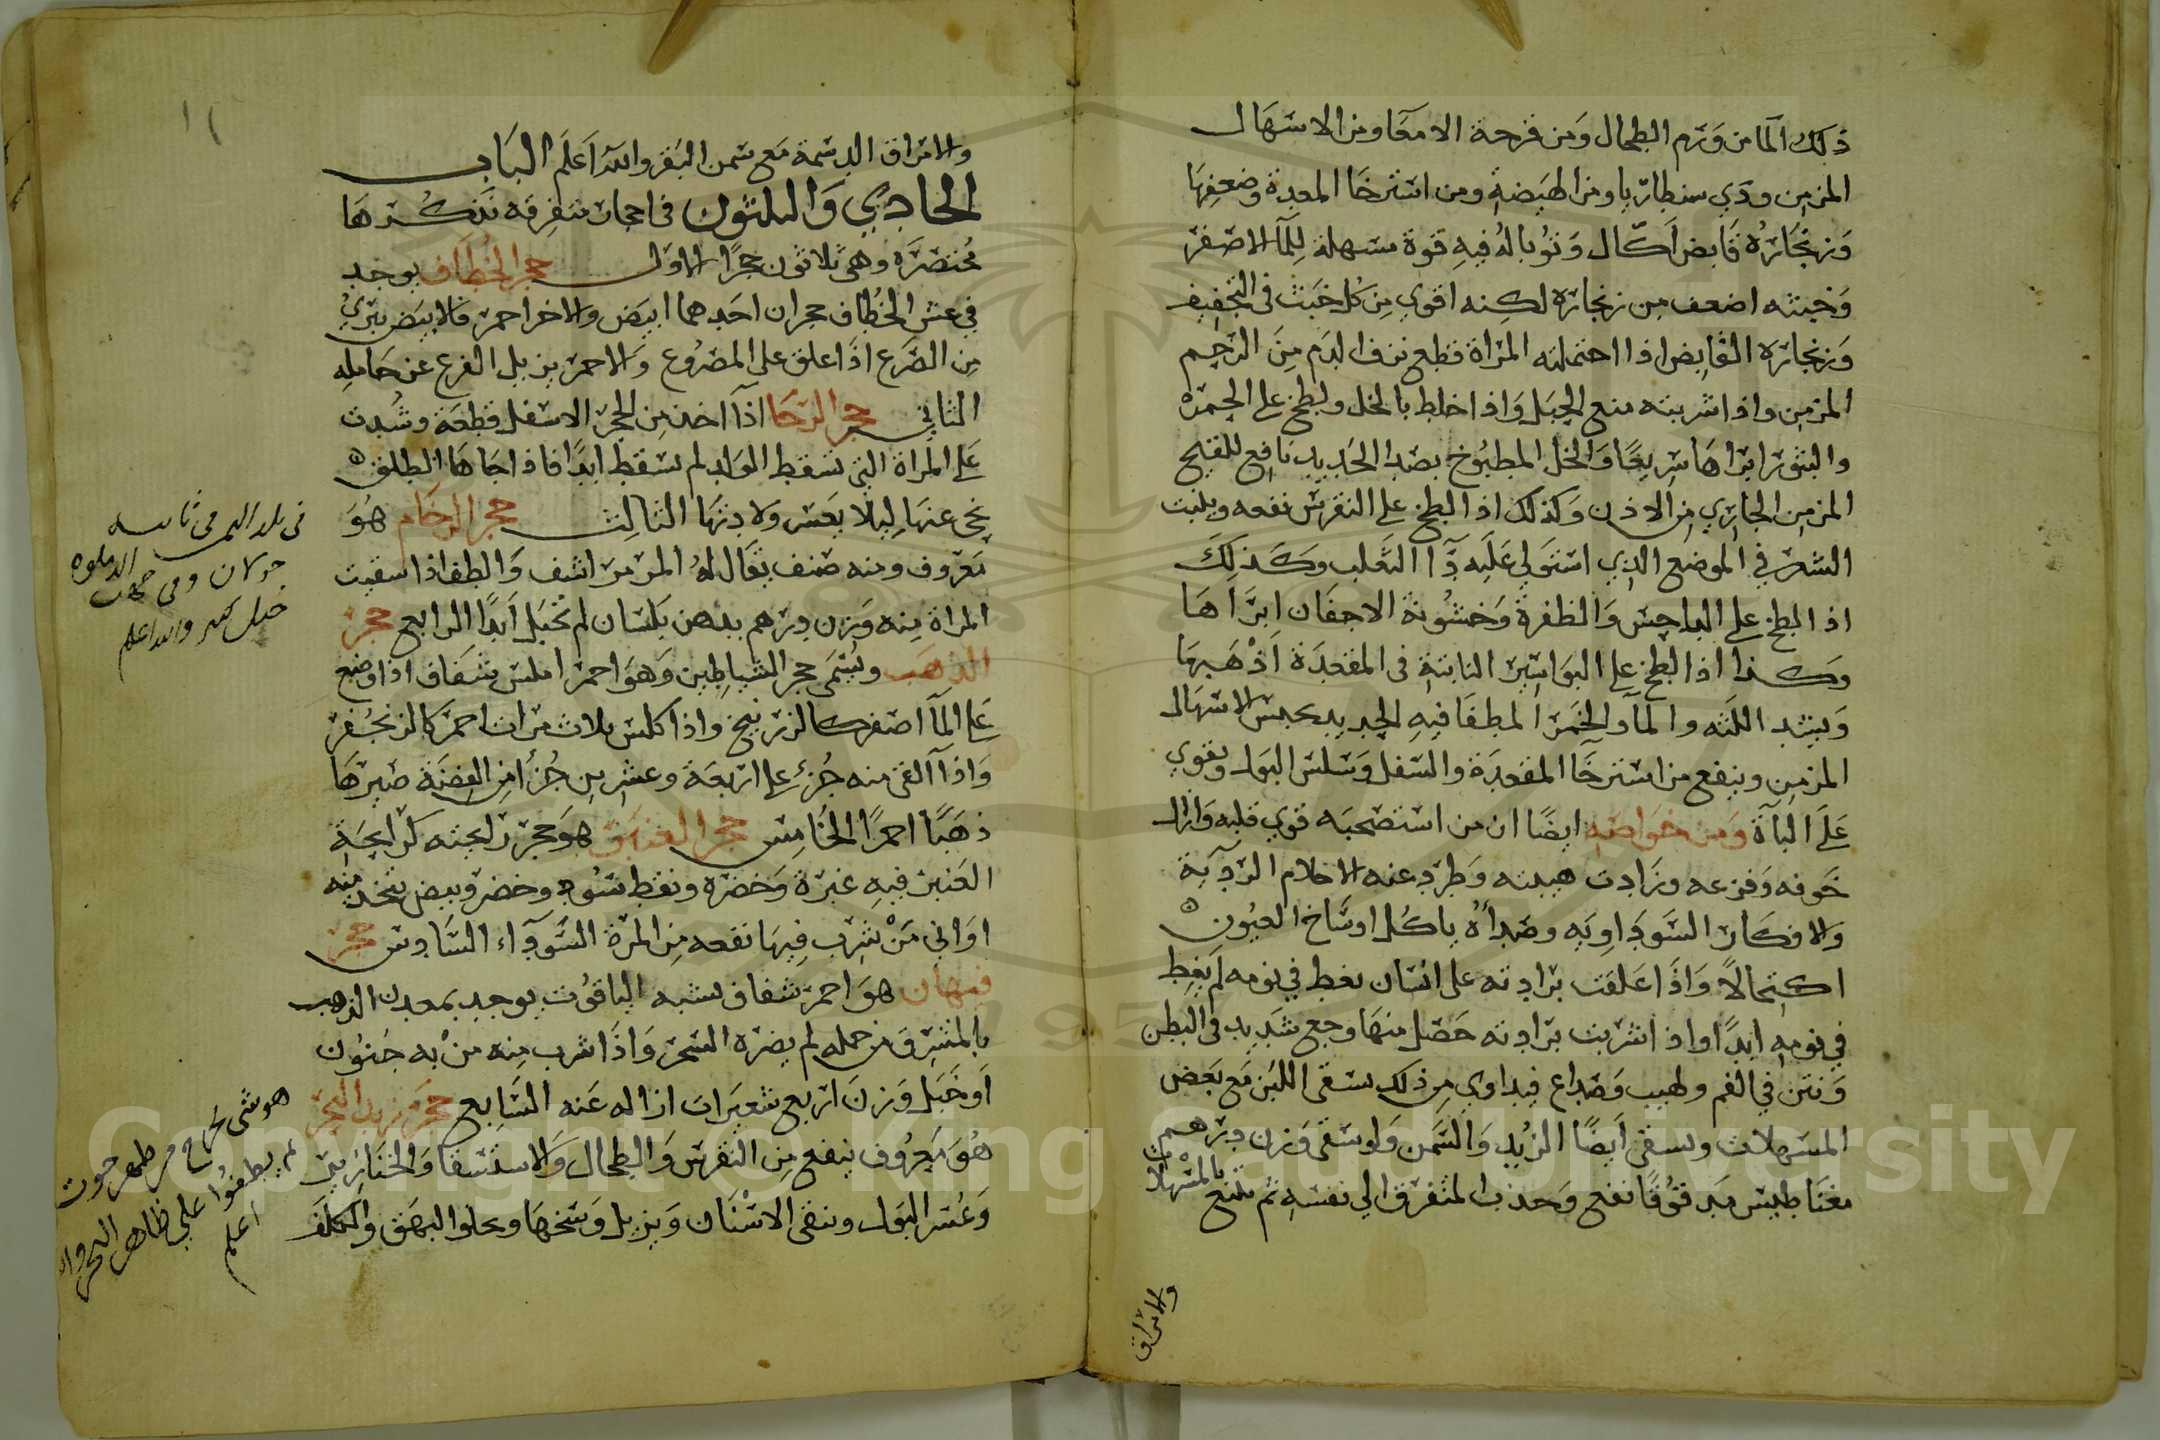 ذلك الما من ورم الطحال ومن قرحة الامعا ومن الاسهال
المزمن ودي سنطاريا ومن الهيضة ومن استرخا المعدة وضعفها
وزنجاره قابض اكّال وتوباله فيه قوة مسهلة للمآ الاصفر
وخبثه اضعف من زنجاره لكنه اقوي من كل خبث في التجفيف
وزنجاره القابض اذا احتملته المراة قطع نزف الدم من الرحم
المزمن واذا شربته منع الحبل واذا خلط بالخل ولطخ علي الحمرة
والبثور ابراها سريعًا والخل المطبوخ بصدا الحديد نافع للقيح
المزمن الجاري من الاذن وكذلك اذا لطخ علي النقرس نفعه وينبت
الشعر في الموضع الذي استولي عليه دآ الثعلب وكذلك
اذ الطخ علي الداحس والظفرة وخشونة الاجفان ابرآها
وكذا اذا لطخ علي البواسير الناتية في المقعدة اذهبها
ويشد اللثه والمآ والخمر المطفا فيه الحديد يحبس الاسهال
المزمن وينفع من استرخا المقعدة والسفل وسلس البول ويقوي
علي البآة ومن خواصه ايضًا ان من استصحبه قوي قلبه وازال
خوفه وفزعه وزادت هيبته وطرد عنه الاحلام الرديّة
والافكار السوداويه وصداه ياكل اوساخ العيون
اكتحالًا واذا علقت برادته على انسان يغط في نومه لم يغط
في نومه ابدًا واذا شربت برادته حصل منها وجع شديد في البطن
ونتن في الفم ولهيب وصداع فيداوي من ذلك بسقي اللبن مع بعض
المسهلات ويسقي ايضًا الزبد والسمن ولو سقي وزن درهمين
مغناطيس مدقوقًا نفع وجذب المتفرق الي نفسه ثم يتبع بالمسهلات
والامراق
والامراق الدسمة مع سمن البقر والله اعلم الباب
الحادي والثلثون في احجار متفرقه نذكرها
مختصرة وهي ثلاثون حجرًا الاول حجر الخطاف يوجد
في عش الخطاف حجران احدهما ابيض والاخر احمر فالابيض يبري
من الصرع اذا علق على المصروع والاحمر يزيل الفزع عن حامله
الثاني حجر الرحا اذا اخذ من الحجر الاسفل قطعة وشدت
علي المراة التي تسقط الولد لم تسقط ابدًا فاذا جاها الطلق
نحي عنها ليلا يعسر ولادتها الثالث حجر الرخام هو
معروف ومنه صنف يقال له المرمر اشف والطف اذا سقيت
المراة منه وزن درهم بدهن بلسان لم تحبل ابدًا الرابع حجر
الذهب ويسمى حجر الشياطين وهو احمر املس شفاف اذا وضع
علي المآ اصفر كالزرنيخ واذا كلس ثلاث مرات احمر كالزنجفر
واذا القي منه جزء علي اربعة وعشرين جزًا من الفضة صيرها
ذهبًا احمرًا الخامس حجر العنبري هو حجر رايحته كرايحة
العنبر فيه غبرة وخضرة ونقط سود وخضر وبيض يتخذ منه
اواني من شرب فيها نفعه من المرة السودآء السادس حجر
فيهان هو احمر شفاف يشبه الياقوت يوجد بمعدن الذهب
بالمشرق من حمله لم يضره السحر واذا شرب منه من به جنون
او خبل وزن اربع شعيرات ازاله عنه السابع حجر زبد البحر
هو معروف ينفع من النقرس والطحال والاستسقا والخنازير
وعسر البول وينقي الاسنان ويزيل وسخها ويجلوا البهق والكلف
في بلد اليمن في
خولان وفي جهت
والله اعلم
هو شي يخرج من ظهر حوت
ثم يطفوا علي ظاهر البحر والله
اعلم
١١
Copyright © King Saud University